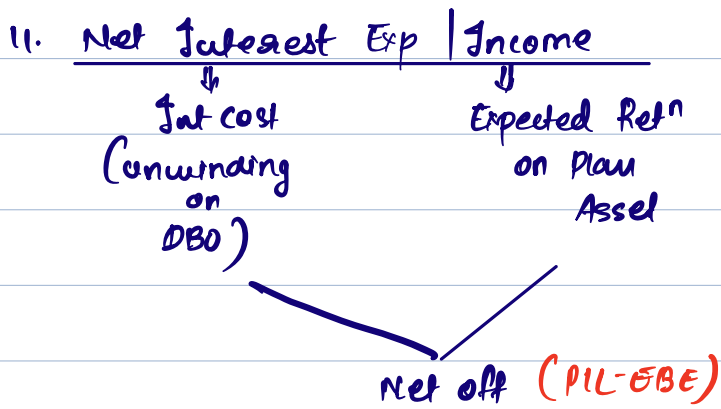 11. Net Interest Exp | Income
Int cost
(unwinding
on
DBO)
Expected Retn
on Plan
Asset
Net off (P/L-EBE)